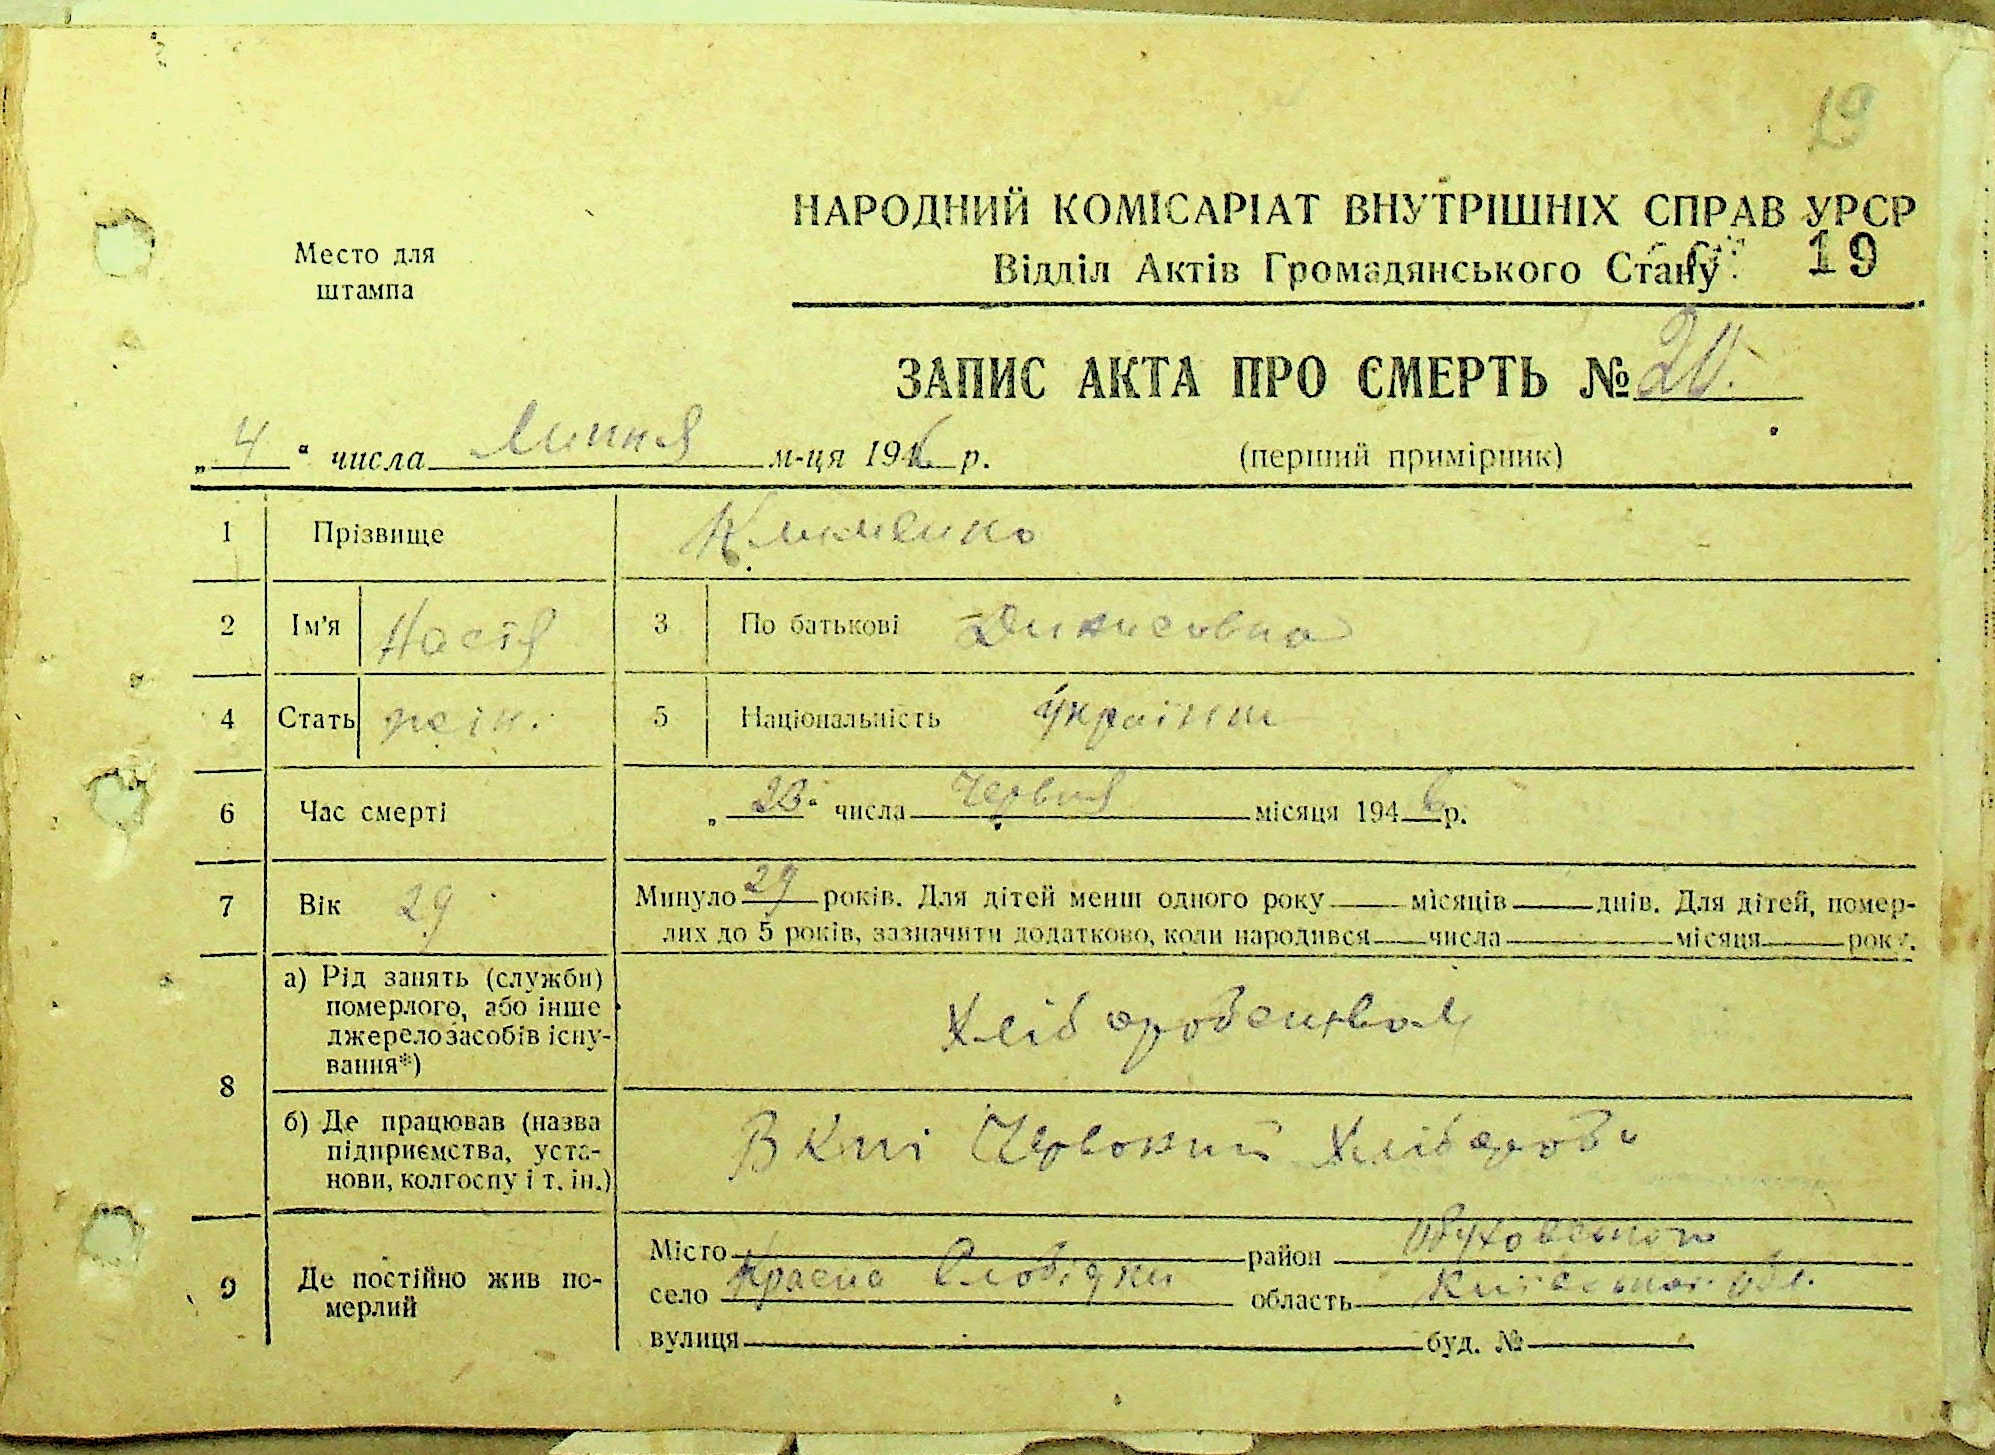 19
НАРОДНИЙ КОМІСАРІАТ ВНУТРІШНІХ СПРАВ УРСР
Место для штампа
Відділ Актів Громадянського Стану 19
ЗАПИС АКТА ПРО СМЕРТЬ № 20.
„ 4 " числа Липня м-ця 1946 р. (перший примірник)
1 Прізвище Клименко
2 Ім'я Настя 3 По батькові Денисовна
4 Стать жін. 5 Національність Українка
6 Час смерті „ " числа Червня місяця 1946 р.
7 Вік 29 Минуло 29 років. Для дітей менш одного року місяців днів. Для дітей, помер-
лих до 5 років, зазначити додатково, коли народився числа місяця року.
8 а) Рід занять (служби)
померлого, або інше
джерело засобів існу-
вання*)
Хліборобством
б) Де працював (назва
підприємства, уста-
нови, колгоспу і т. ін.)
В Червоний Хлібороб
9 Де постійно жив по-
мерлий
Місто район Обуховского
село Красна Слобідка область Київської обл.
вулиця буд. №